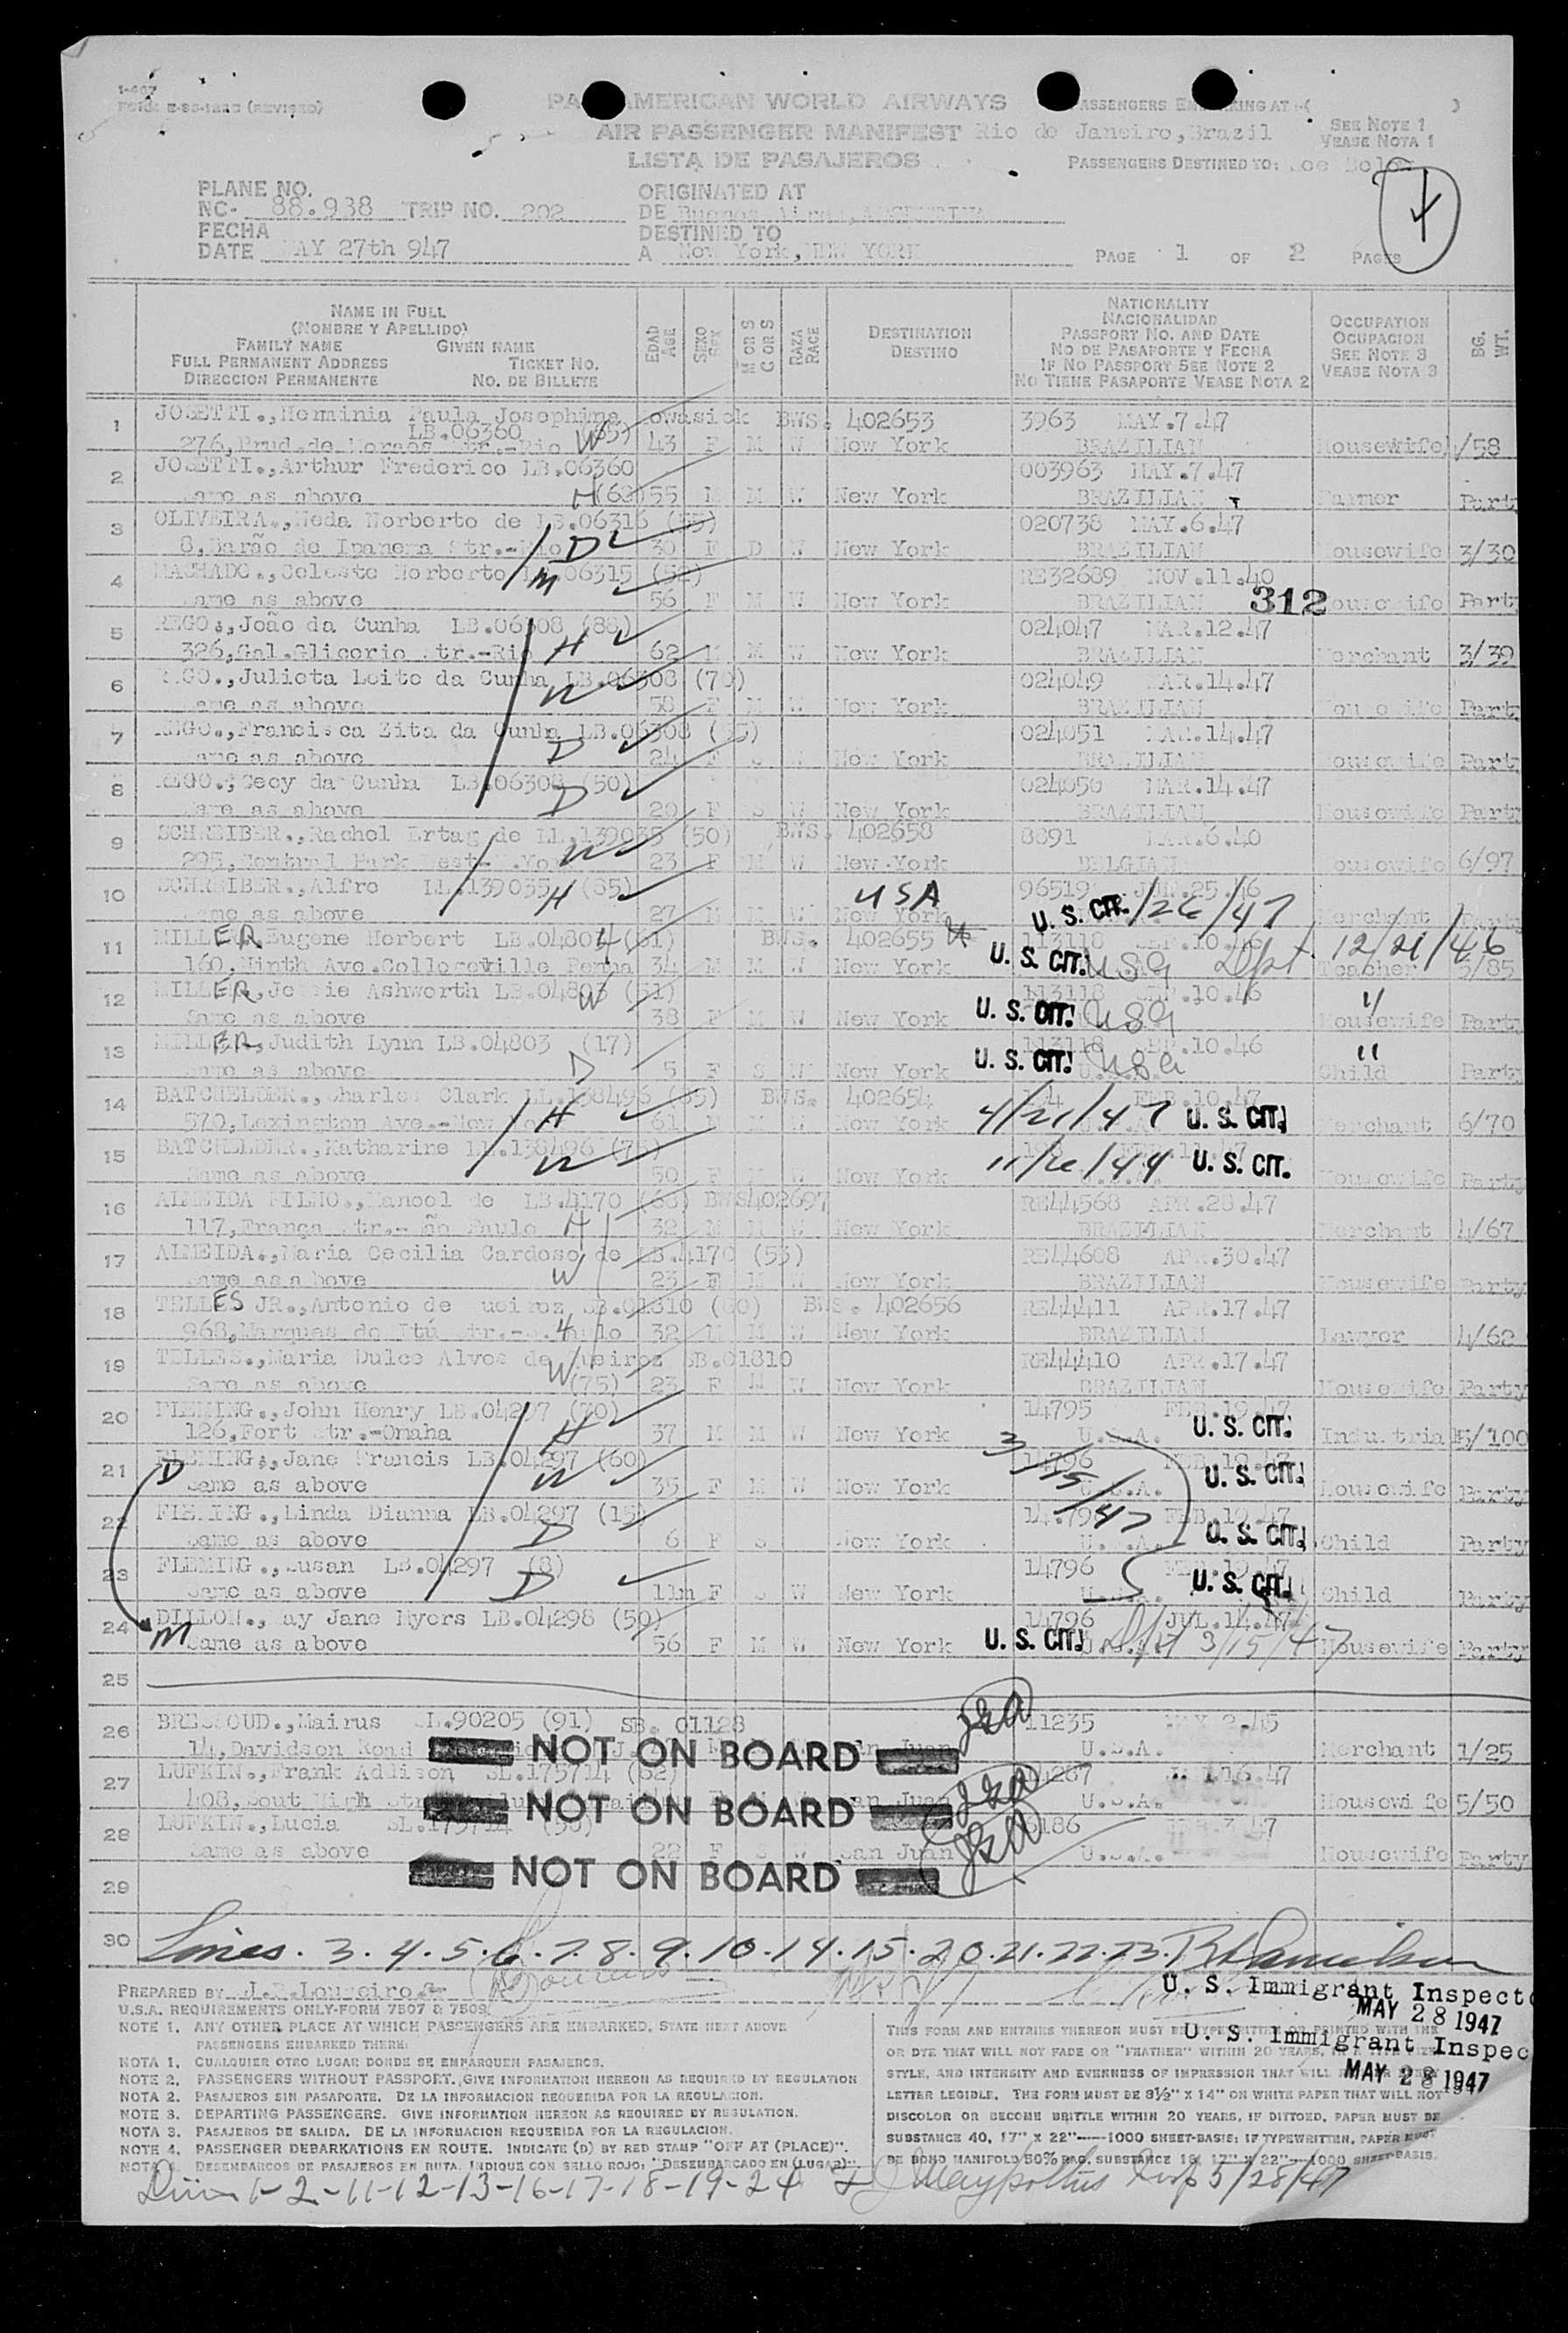 I-467
FORM E-95-122C (REVISED)
PAN AMERICAN WORLD AIRWAYS
AIR PASSENGER MANIFEST
LISTA DE PASAJEROS
PASSENGERS EMBARKING AT :-( )
Rio de Janeiro, Brazil
SEE NOTE 1
VEASE NOTA 1
PASSENGERS DESTINED TO:
PLANE NO.
NC- 88.938 TRIP NO. 202
FECHA
DATE MAY 27th 947
ORIGINATED AT
DE Buenos Aires, ARGENTINA
DESTINED TO
A New York, NEW YORK
PAGE 1 OF 2 PAGES
NAME IN FULL
(NOMBRE Y APELLIDO)
FAMILY NAME GIVEN NAME
FULL PERMANENT ADDRESS TICKET NO.
DIRECCION PERMANENTE NO. DE BILLETE
EDAD AGE
SEXO SEX
M OR S C OR S
RAZA RACE
DESTINATION
DESTINO
NATIONALITY
NACIONALIDAD
PASSPORT NO. AND DATE
NO DE PASAPORTE Y FECHA
IF NO PASSPORT SEE NOTE 2
NO TIENE PASAPORTE VEASE NOTA 2
OCCUPATION
OCUPACION
SEE NOTE 3
VEASE NOTA 3
BG. WT.
1 JOSETTI., Herminia Paula Josephine Owasick BWS. 402653 3963 MAY.7.47
LB.06360 (65)
276, Prud.de Moraes Str.-Rio W 43 F M W New York BRAZILIAN Housewife 1/58
2 JOSETTI., Arthur Frederico LB.06360 003963 MAY.7.47
Same as above H (68) 55 M M W New York BRAZILIAN Farmer Party
3 OLIVEIRA., Neda Norberto de LB.06316 (55) 020738 MAY.6.47
8, Barão de Ipanema Str.-Rio D 30 F D W New York BRAZILIAN Housewife 3/30
4 MACHADO., Celeste Norberto LB.06315 (52) RE32689 NOV.11.40
Same as above M 56 F M W New York BRAZILIAN 312 Housewife Party
5 REGO., João da Cunha LB.06308 (88) 024047 MAR.12.47
326, Gal.Glicerio Str.-Rio H 62 M M W New York BRAZILIAN Merchant 3/39
6 REGO., Julieta Leite da Cunha LB.06308 (70) 024049 MAR.14.47
Same as above W 58 F M W New York BRAZILIAN Housewife Party
7 REGO., Francisca Zita da Cunha LB.06308 024051 MAR.14.47
Same as above D 24 F S W New York BRAZILIAN Housewife Party
8 REGO., Cecy da Cunha LB.06308 (50) 024050 MAR.14.47
Same as above D 20 F S W New York BRAZILIAN Housewife Party
9 SCHREIBER., Rachel Ertag de LL.139035 (50) BWS. 402658 8891 MAR.6.40
295, Central Park West- W 23 F M W New York BELGIAN Housewife 6/97
10 SCHREIBER., Alfre LL.139035 (85) USA 96519 JUN.25.46
Same as above H 27 M M W New York U. S. CIT. /26/47 Merchant Party
11 MILLER Eugene Herbert LB.04804 (81) BWS. 402655 113118 SEP.10.46 12/21/46
160, Ninth Ave. Collegeville Penna 34 M M W New York U. S. CIT. USA Dept Teacher 5/85
12 MILLER, Jessie Ashworth LB.04803 (51) 113118 SEP.10.46
Same as above W 38 F M W New York U. S. CIT. USA " Housewife Party
13 MILLER, Judith Lynn LB.04803 (17) 113118 SEP.10.46
Same as above D 5 F S W New York U. S. CIT. USA " Child Party
14 BATCHELDER., Charles Clark LL.138496 BWS. 402654 FEB.10.47
570, Lexington Ave.-New York H 61 M M W New York 4/21/47 U. S. CIT. Merchant 6/70
15 BATCHELDER., Katharine LL.138496 (75)
Same as above W 50 F M W New York U. S. CIT. Housewife Party
16 ALMEIDA FILHO., Manoel de LB.4170 (68) BWS402697 RE44568 APR.28.47
117, França Str.- São Paulo H 32 M M W New York BRAZILIAN Merchant 4/67
17 ALMEIDA., Maria Cecilia Cardoso de LB.4170 (55) RE44608 APR.30.47
Same as above W 23 F M W New York BRAZILIAN Housewife Party
18 TELLES JR., Antonio de Queiroz SB.01810 (80) BWS. 402656 RE44411 APR.17.47
968, Marques de Itú Str.-S.Paulo H 32 M M W New York BRAZILIAN Lawyer 4/62
19 TELLES., Maria Dulce Alves de Queiroz SB.01810 RE44410 APR.17.47
Same as above W (75) 23 F M W New York BRAZILIAN Housewife Party
20 FLEMING., John Henry LB.04297 (70) 14795 FEB.19.47
126, Fort Str.-Omaha H 37 M M W New York U.S.A. U. S. CIT. Industrial 5/100
21 FLEMING., Jane Francis LB.04297 (60) 14796 FEB.19.47
D Same as above W 35 F M W New York 3/15/47 U.S.A. U. S. CIT. Housewife Party
22 FLEMING., Linda Dianna LB.04297 (15) 14796 FEB.19.47
Same as above D 6 F S New York U.S.A. U. S. CIT. Child Party
23 FLEMING., Susan LB.04297 (8) 14796 FEB.19.47
Same as above D 11m F S W New York U.S.A. U. S. CIT. Child Party
24 DILLON., May Jane Myers LB.04298 (50) 14796 JUL.14.47
M Same as above 56 F M W New York U. S. CIT. U.S.A. Dpt 3/15/47 Housewife Party
25
26 BRESSOUD., Mairus SL.90205 (91) SB. 01128 11235 MAY 2.45
14, Davidson Road NOT ON BOARD San Juan U.S.A. Merchant 1/25
27 LUFKIN., Frank Addison SL.175714 (82) 16.47
408, Sout High NOT ON BOARD San Juan U.S.A. Housewife 5/50
28 LUFKIN., Lucia SL.175714 6186 47
Same as above 22 F S W San Juan U.S.A. Housewife Party
NOT ON BOARD
29
30 Lines. 3. 4. 5. 6. 7. 8. 9. 10. 14. 15. 20. 21. 22. 23.
PREPARED BY J.P.Loureiro
U. S. Immigrant Inspecto
MAY 28 1947
U. S. Immigrant Inspec
MAY 28 1947
U.S.A. REQUIREMENTS ONLY-FORM 7507 & 7509.
NOTE 1. ANY OTHER PLACE AT WHICH PASSENGERS ARE EMBARKED, STATE NEXT ABOVE
PASSENGERS EMBARKED THERE.
NOTA 1. CUALQUIER OTRO LUGAR DONDE SE EMBARQUEN PASAJEROS.
NOTE 2. PASSENGERS WITHOUT PASSPORT. GIVE INFORMATION HEREON AS REQUIRED BY REGULATION
NOTA 2. PASAJEROS SIN PASAPORTE. DE LA INFORMACION REQUERIDA POR LA REGULACION.
NOTE 3. DEPARTING PASSENGERS. GIVE INFORMATION HEREON AS REQUIRED BY REGULATION.
NOTA 3. PASAJEROS DE SALIDA. DE LA INFORMACION REQUERIDA POR LA REGULACION.
NOTE 4. PASSENGER DEBARKATIONS EN ROUTE. INDICATE (D) BY RED STAMP "OFF AT (PLACE)".
NOTA 4. DESEMBARCOS DE PASAJEROS EN RUTA. INDIQUE CON SELLO ROJO: "DESEMBARCADO EN (LUGAR)".
THIS FORM AND ENTRIES THEREON MUST BE TYPEWRITTEN OR PRINTED WITH INK
OR DYE THAT WILL NOT FADE OR "FEATHER" WITHIN 20 YEARS,
STYLE, AND INTENSITY AND EVENNESS OF IMPRESSION THAT WILL
LETTER LEGIBLE. THE FORM MUST BE 8½" X 14" ON WHITE PAPER THAT WILL NOT
DISCOLOR OR BECOME BRITTLE WITHIN 20 YEARS, IF DITTOED, PAPER MUST BE
SUBSTANCE 40, 17" X 22"-----1000 SHEET-BASIS; IF TYPEWRITTEN, PAPER MUST
BE BOND MANIFOLD 50% RAG, SUBSTANCE 16, 17" X 22"-----1000 SHEET-BASIS.
1-2-11-12-13-16-17-18-19-24 Insp 5/28/47